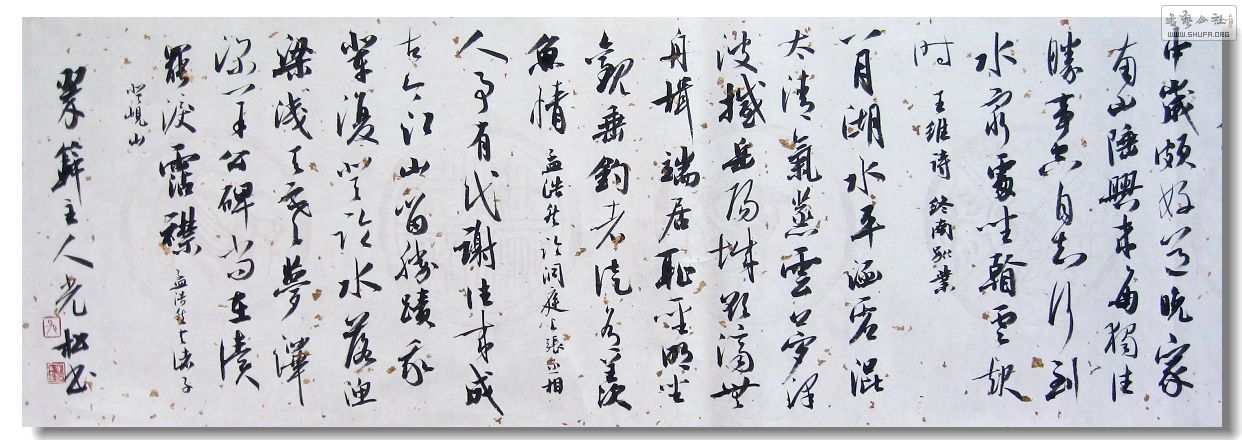 中歲頗好道晚家
南山陲興來每獨往
勝事空自知行到
水窮處坐看雲起
时
王維詩 終南別業
八月湖水平涵虛混
太清氣蒸雲夢澤
波撼岳陽城欲濟無
舟楫端居恥聖明坐
觀垂釣者徒有羨
魚情
孟浩然臨洞庭上張丞相
人事有代謝往來成
古今江山留勝蹟我
輩復登臨水落漁
梁淺天寒夢澤
深羊公碑尚在讀
罷淚霑襟
孟浩然與諸子
登峴山
主人光松書
書藝公社
WWW.SHUFA.ORG